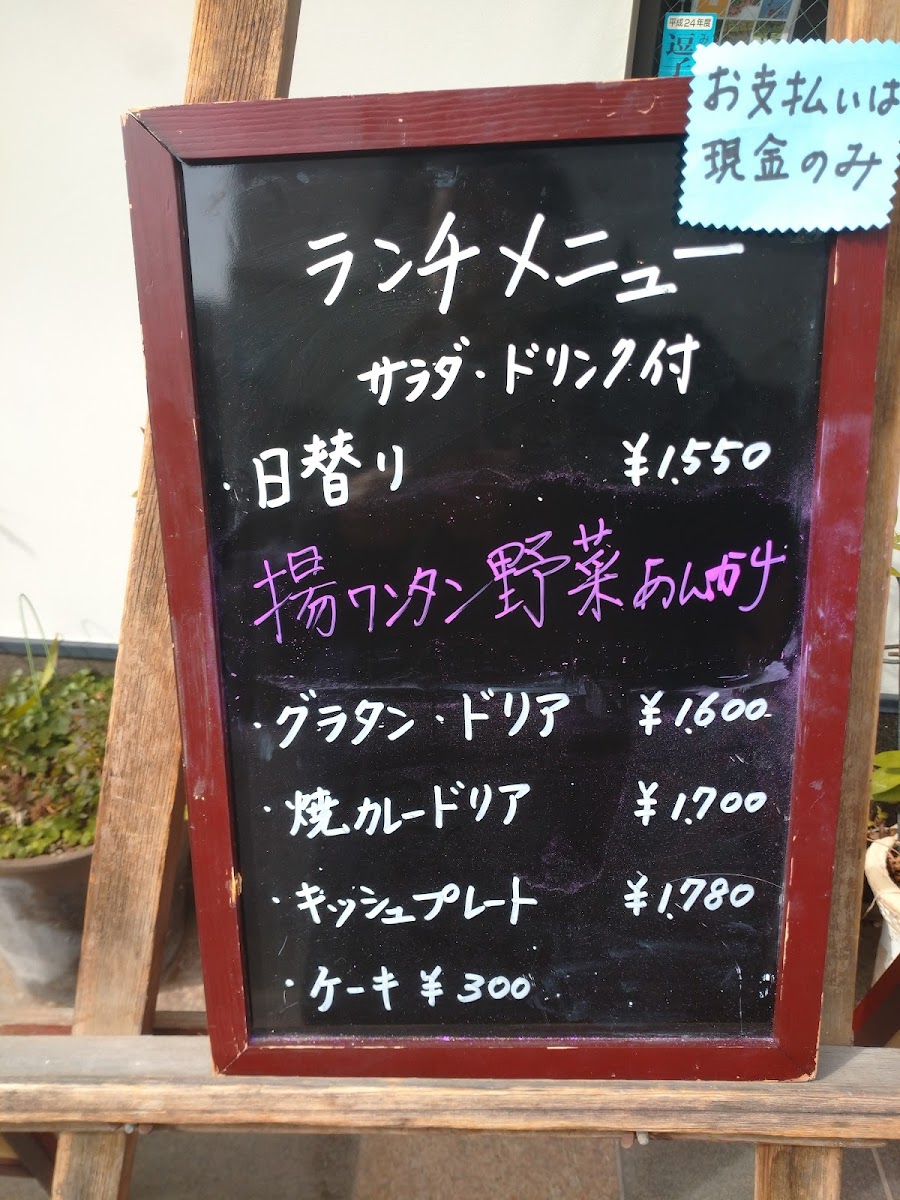 平成24年度
逗子
お支払いは
現金のみ
ランチメニュー
サラダ・ドリンク付
・日替り ¥1,550
揚ワンタン野菜あんかけ
・グラタン・ドリア ¥1,600
・焼カレードリア ¥1,700
・キッシュプレート ¥1,780
・ケーキ ¥300